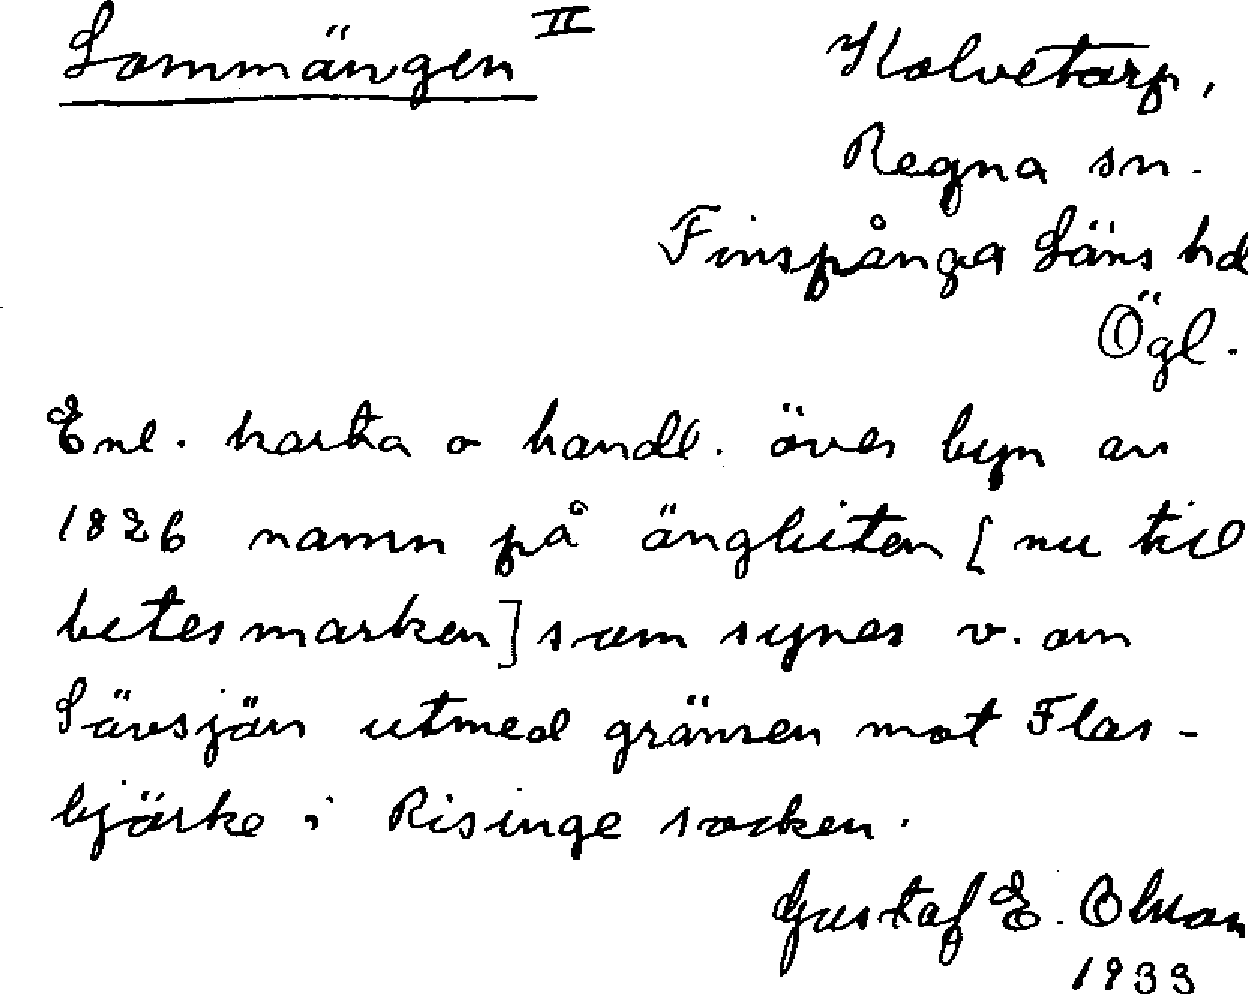 Lommängen II
Kolvetorp,
Regna sn.
Finspånga Läns hd
Ögl.
Enl. karta o handl. över byn av
1826 namn på ängbiten [nu till
betesmarken] som synes v. om
Sävsjön utmed gränsen mot Flor-
björke i Risinge socken.
Gustaf E. Olsson
1933